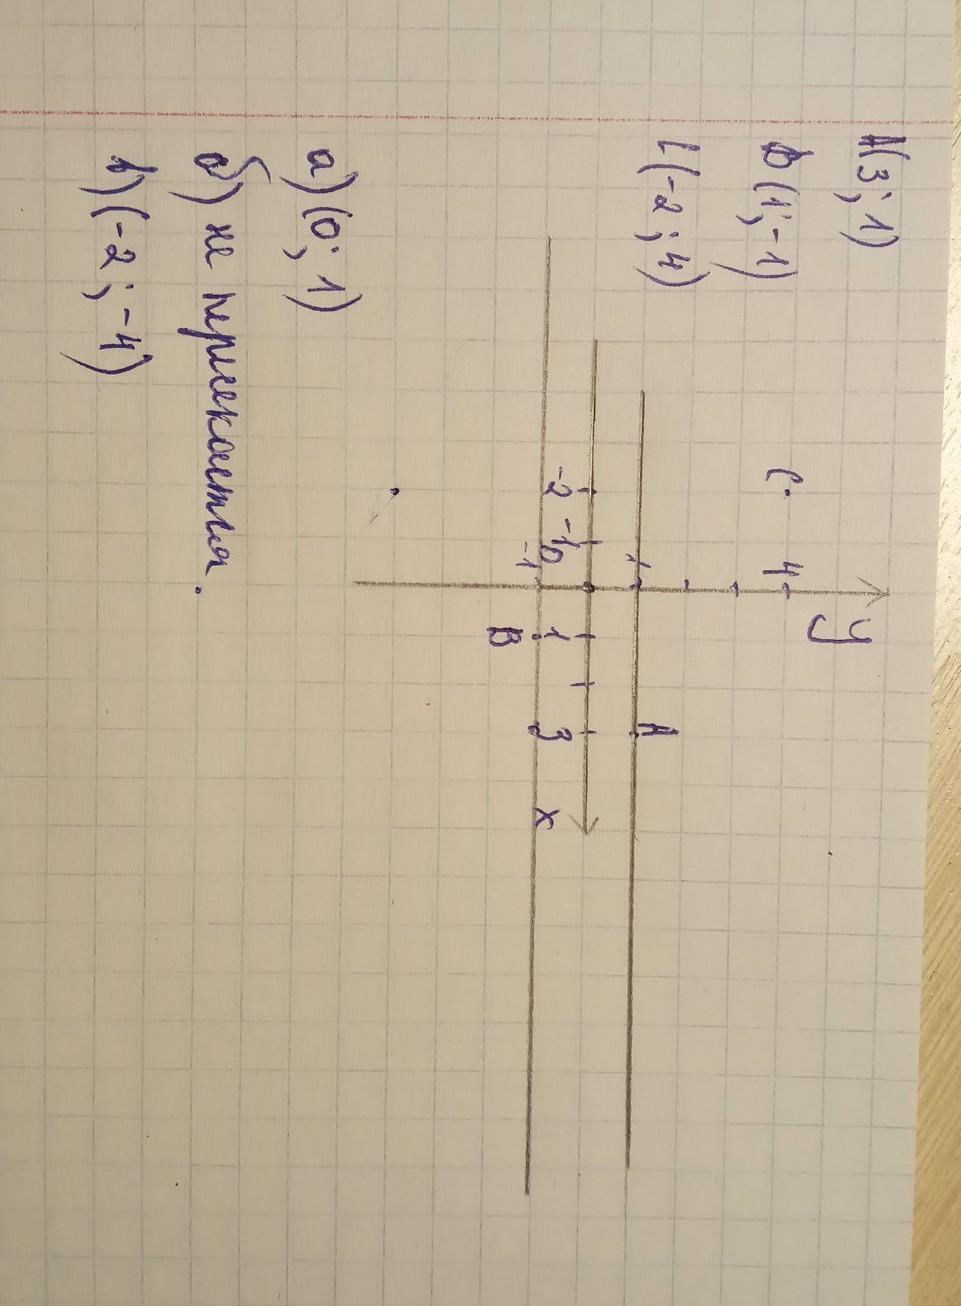 A(3; 1)
B(1; -1)
C(-2; 4)
У
4
C
1
A
-2 -1 0 1 3 x
-1
B
а) (0; 1)
б) не пересекается.
в) (-2; -4)